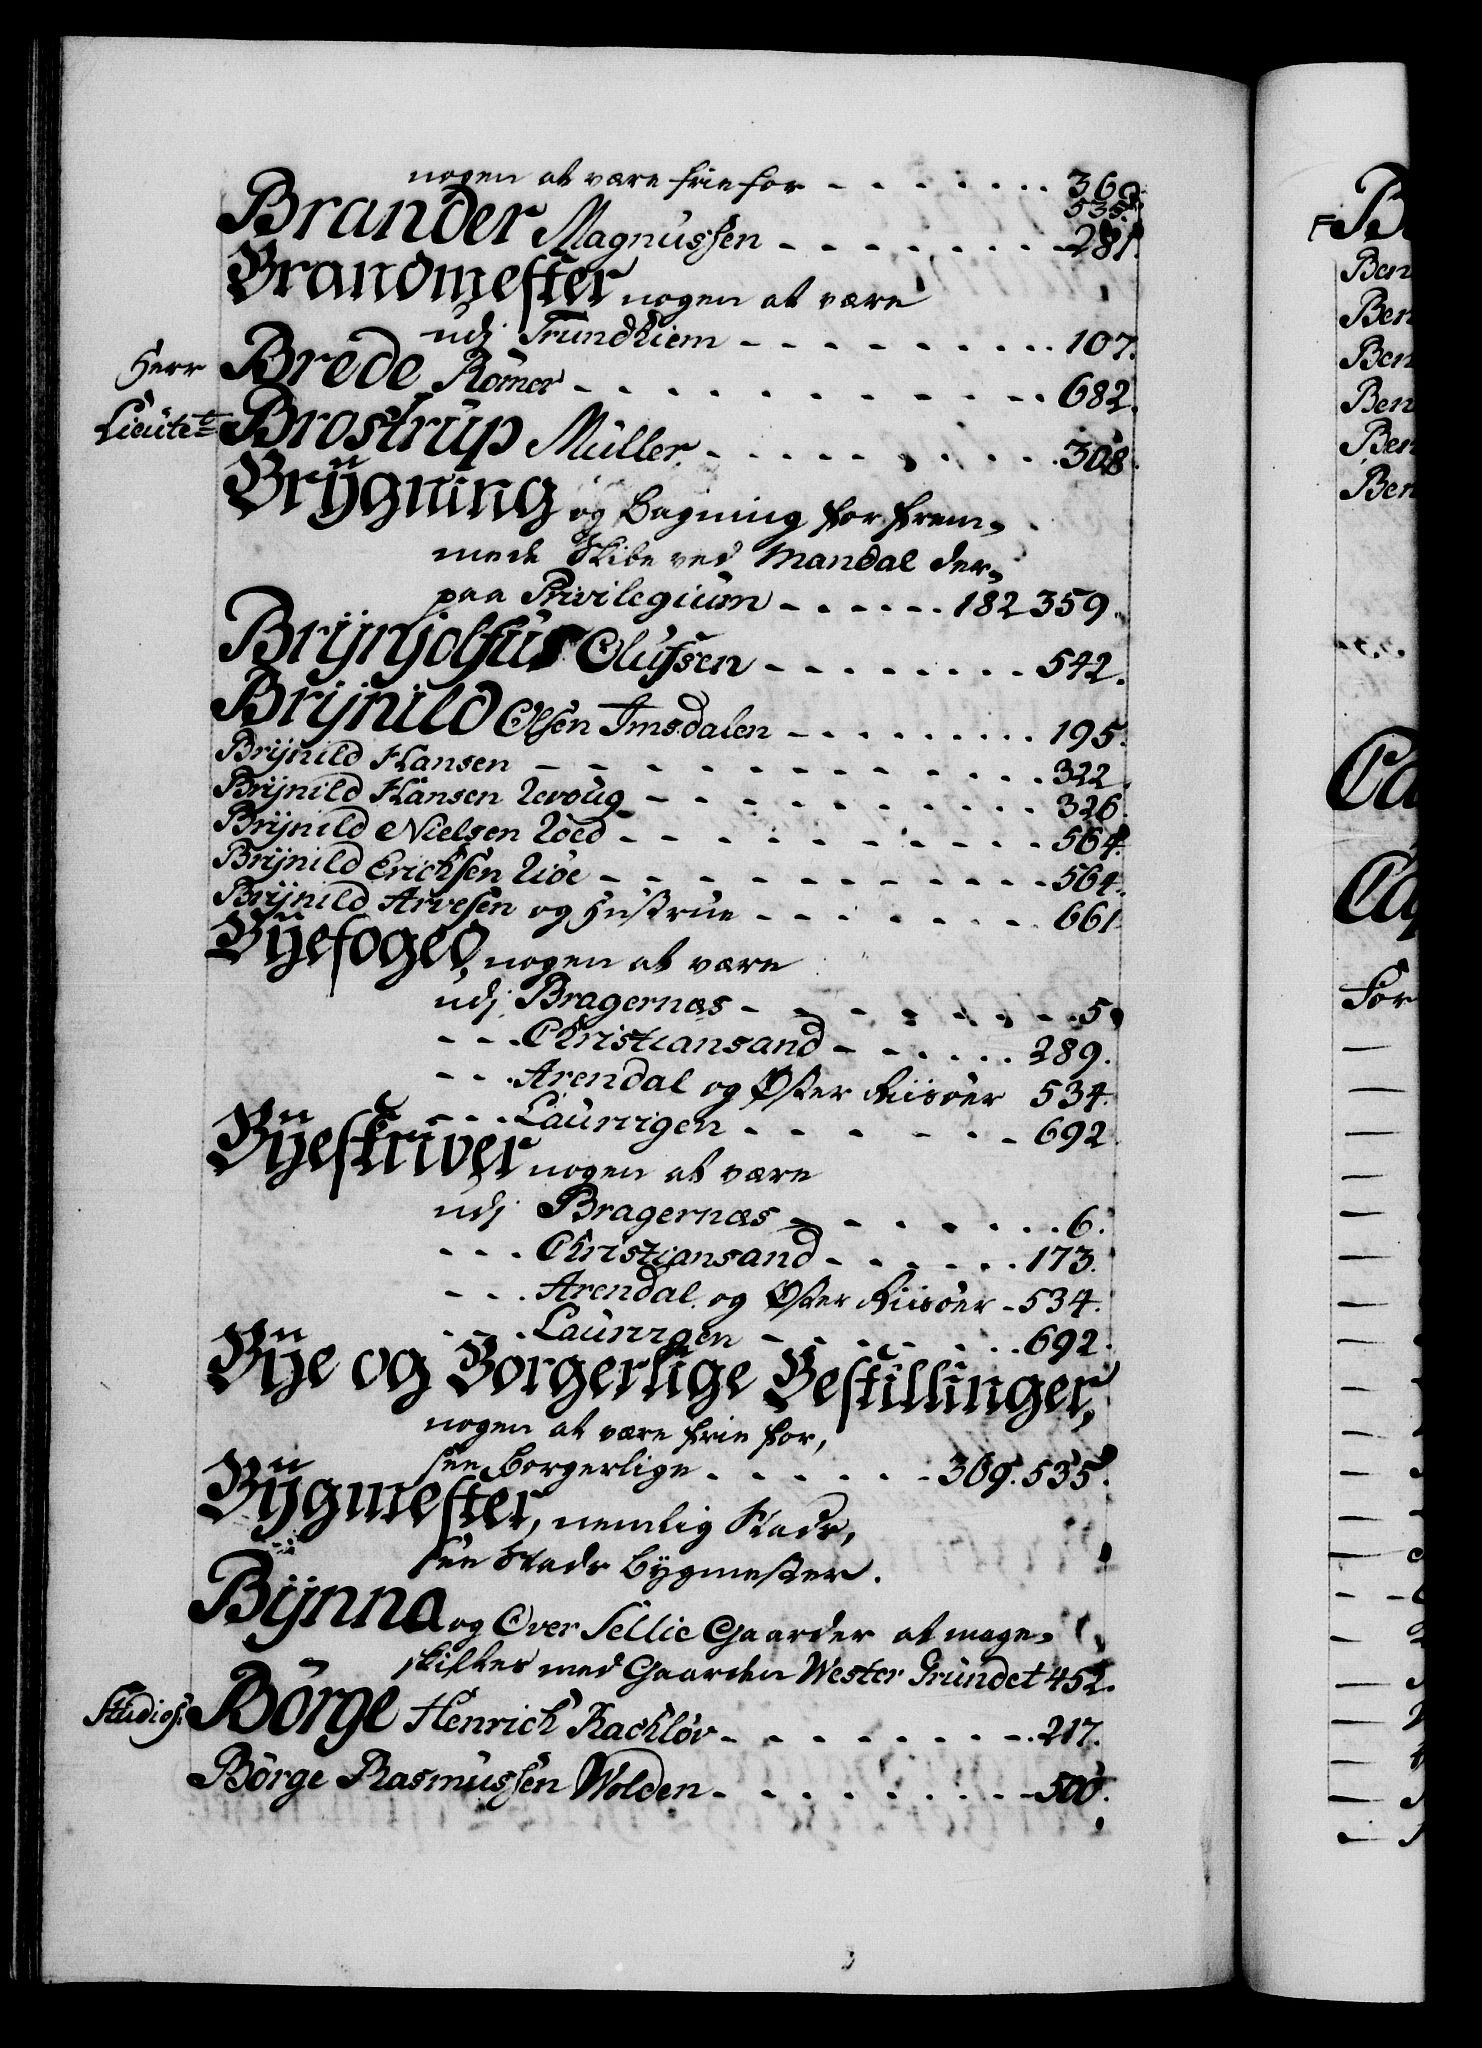 nogen at være frie for - - - - - - - - 369.
535.
Brander Magnussen - - - - - - - - 281.
Brandmester nogen at være
udj Trundhiem - - - - - - - - - 107.
Herr Brede Römer - - - - - - - - - - - 682.
Lieutet= Brostrup Müller - - - - - - - - - 308.
Brÿgning og Bagning for frem-
mede Skibe ved Mandal der-
paa Privilegium - - - - - - 182 359.
Brÿnjolfus Olufsen - - - - - - - - 542.
Brÿnild Olsen Imsdalen - - - - - - - - 195.
Brÿnild Hansen - - - - - - - - - - - - 322.
Brÿnild Hansen - - - - - - - - - - 326.
Brÿnild Nielsen - - - - - - - - - - 564.
Brÿnild Ericksen - - - - - - - - - - - 564.
Brÿnild Arvesen og Hustrue - - - - - - - 661.
Bÿefoged, nogen at være
udj Bragernæs - - - - - - - - 5.
- - - Christiansand - - - - - - 289.
- - - Arendal og Øster Riisöer 534.
- - - Laurvigen - - - - - - - 692.
Bÿeskriver nogen at være
udj Bragernæs - - - - - - - 6.
- - - Christiansand - - - - - - 173.
- - - Arendal og Øster Riisöer - 534.
- - - Laurvigen - - - - - - - 692.
Bÿe og Borgerlige Bestillinger,
nogen at være frie for,
see borgerlige - - - - - - 369. 535.
Bÿgmester, nemlig Stads,
see Stads bygmester.
Bÿnna og Over Sellie Gaarder at mage-
skiftes med Gaarden Wester Grundet 452.
Studios: Börge Henrich Rachlöv - - - - - - - - 217.
Börge Rasmussen Wolden - - - - - - - - - 500.
F B
Ben
Ben
Ben
Ben
Ben
Ben
Ca
Ca
For